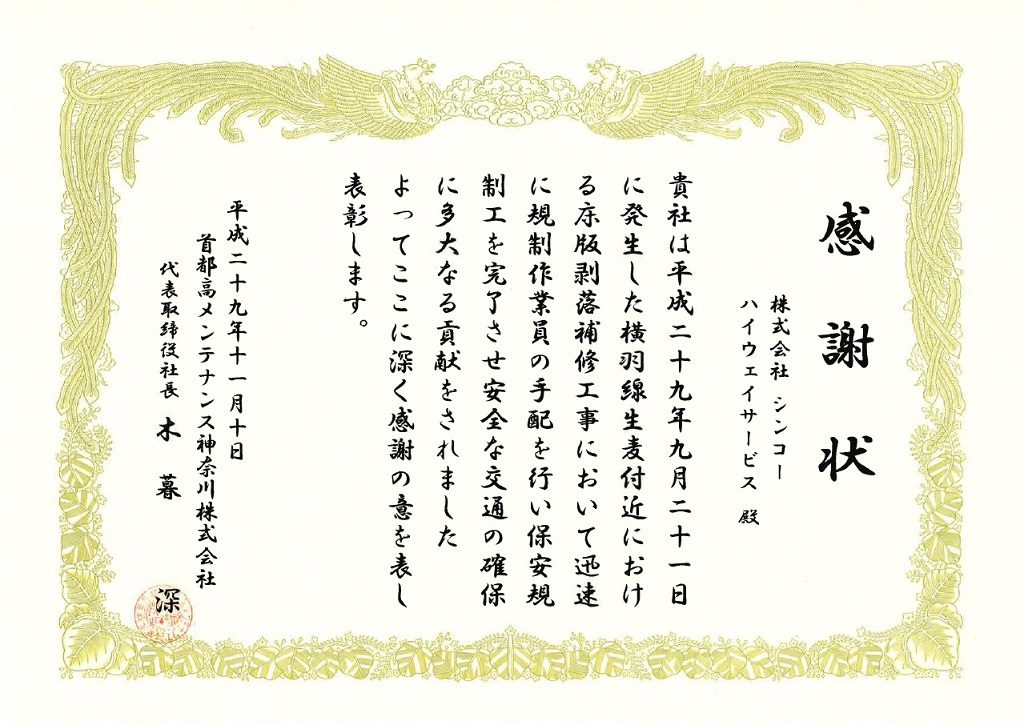 感謝状
株式会社 シンコー
ハイウェイサービス 殿
貴社は平成二十九年九月二十一日
に発生した横羽線生麦付近におけ
る床版剥落補修工事において迅速
に規制作業員の手配を行い保安規
制工を完了させ安全な交通の確保
に多大なる貢献をされました
よってここに深く感謝の意を表し
表彰します。
平成二十九年十一月十日
首都高メンテナンス神奈川株式会社
代表取締役社長 木暮 深